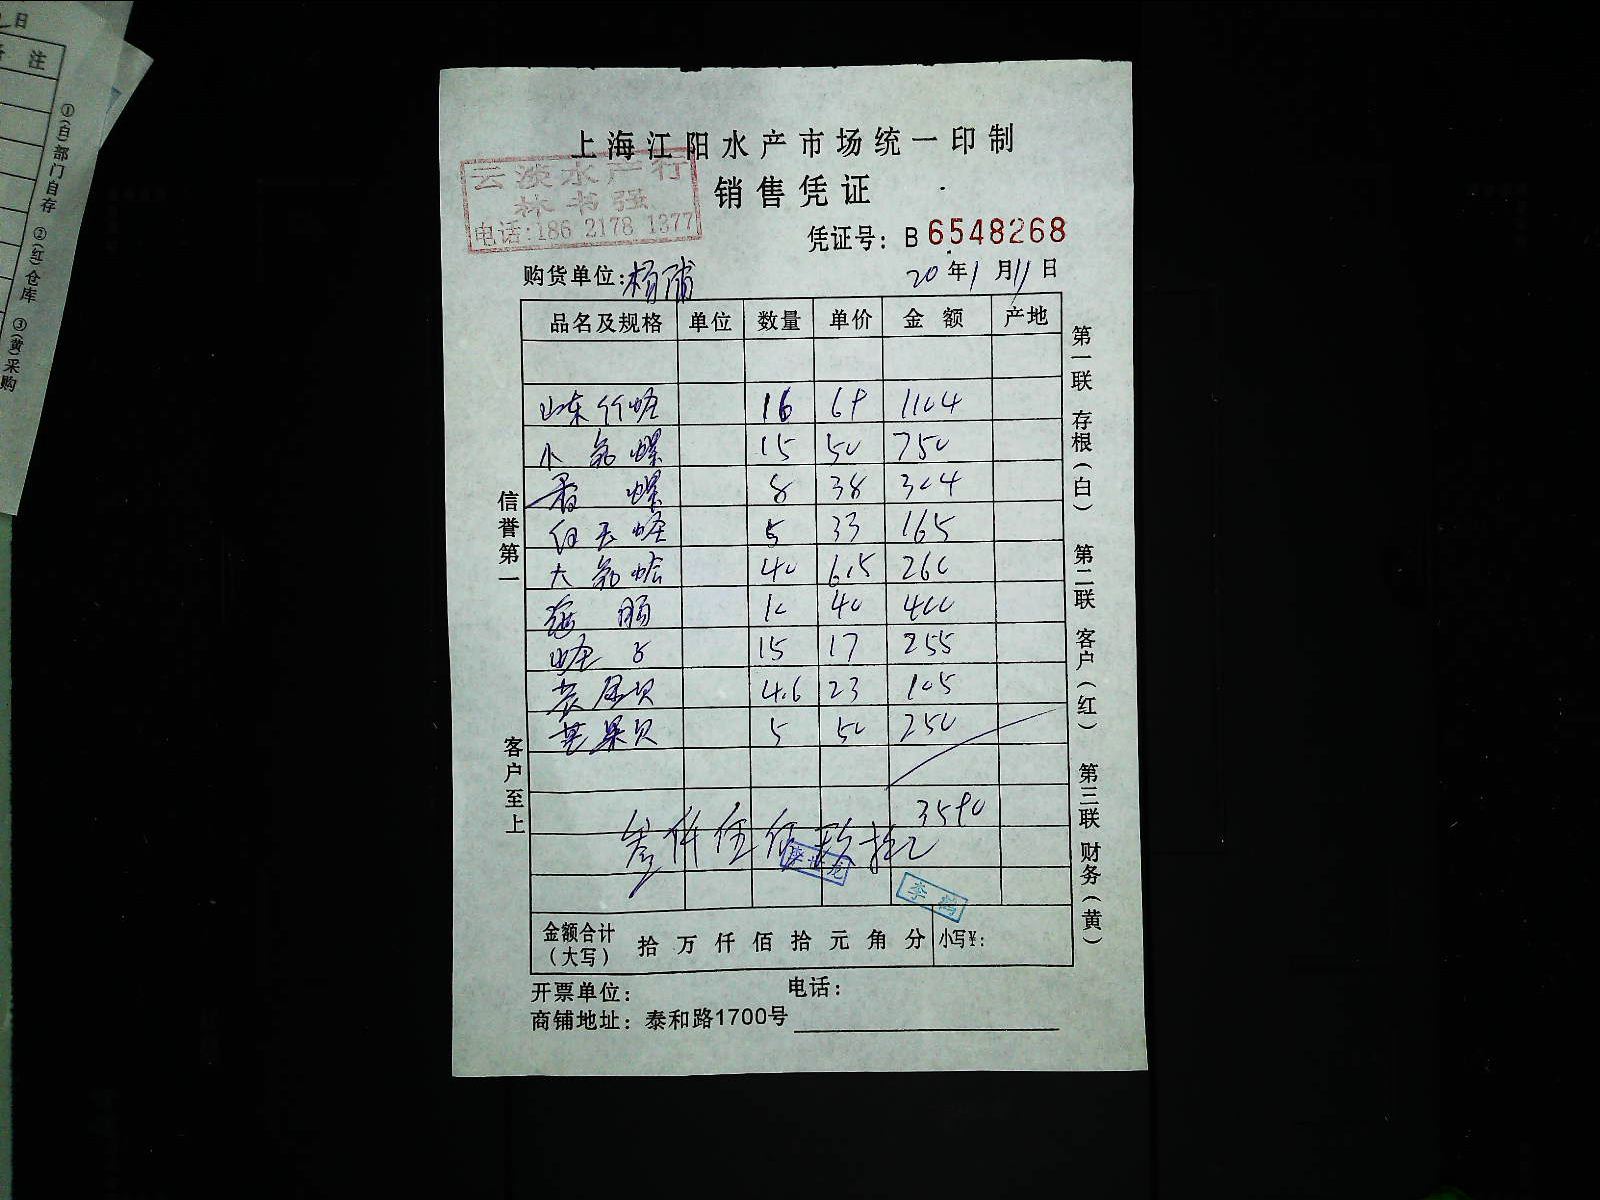 日
注
①(白)部门自存 ②(红)仓库 ③(黄)采购
上海江阳水产市场统一印制
云淡水产行
林书强
电话:186 2178 1377
销售凭证
凭证号: B 6548268
购货单位:杨浦 20年1月11日
品名及规格 单位 数量 单价 金额 产地
山东竹蛏 16 69 1104
小 螺 15 50 750
螺 8 38 304
白玉蛏 5 33 165
大 蛤 40 6.5 260
10 40 400
蛏子 15 17 255
贝 4.6 23 105
芒果贝 5 50 250
3590
叁仟伍佰玖拾元
李鸿
金额合计(大写) 拾 万 仟 佰 拾 元 角 分 小写¥:
开票单位: 电话:
商铺地址: 泰和路1700号
信誉第一
客户至上
第一联 存根(白) 第二联 客户(红) 第三联 财务(黄)